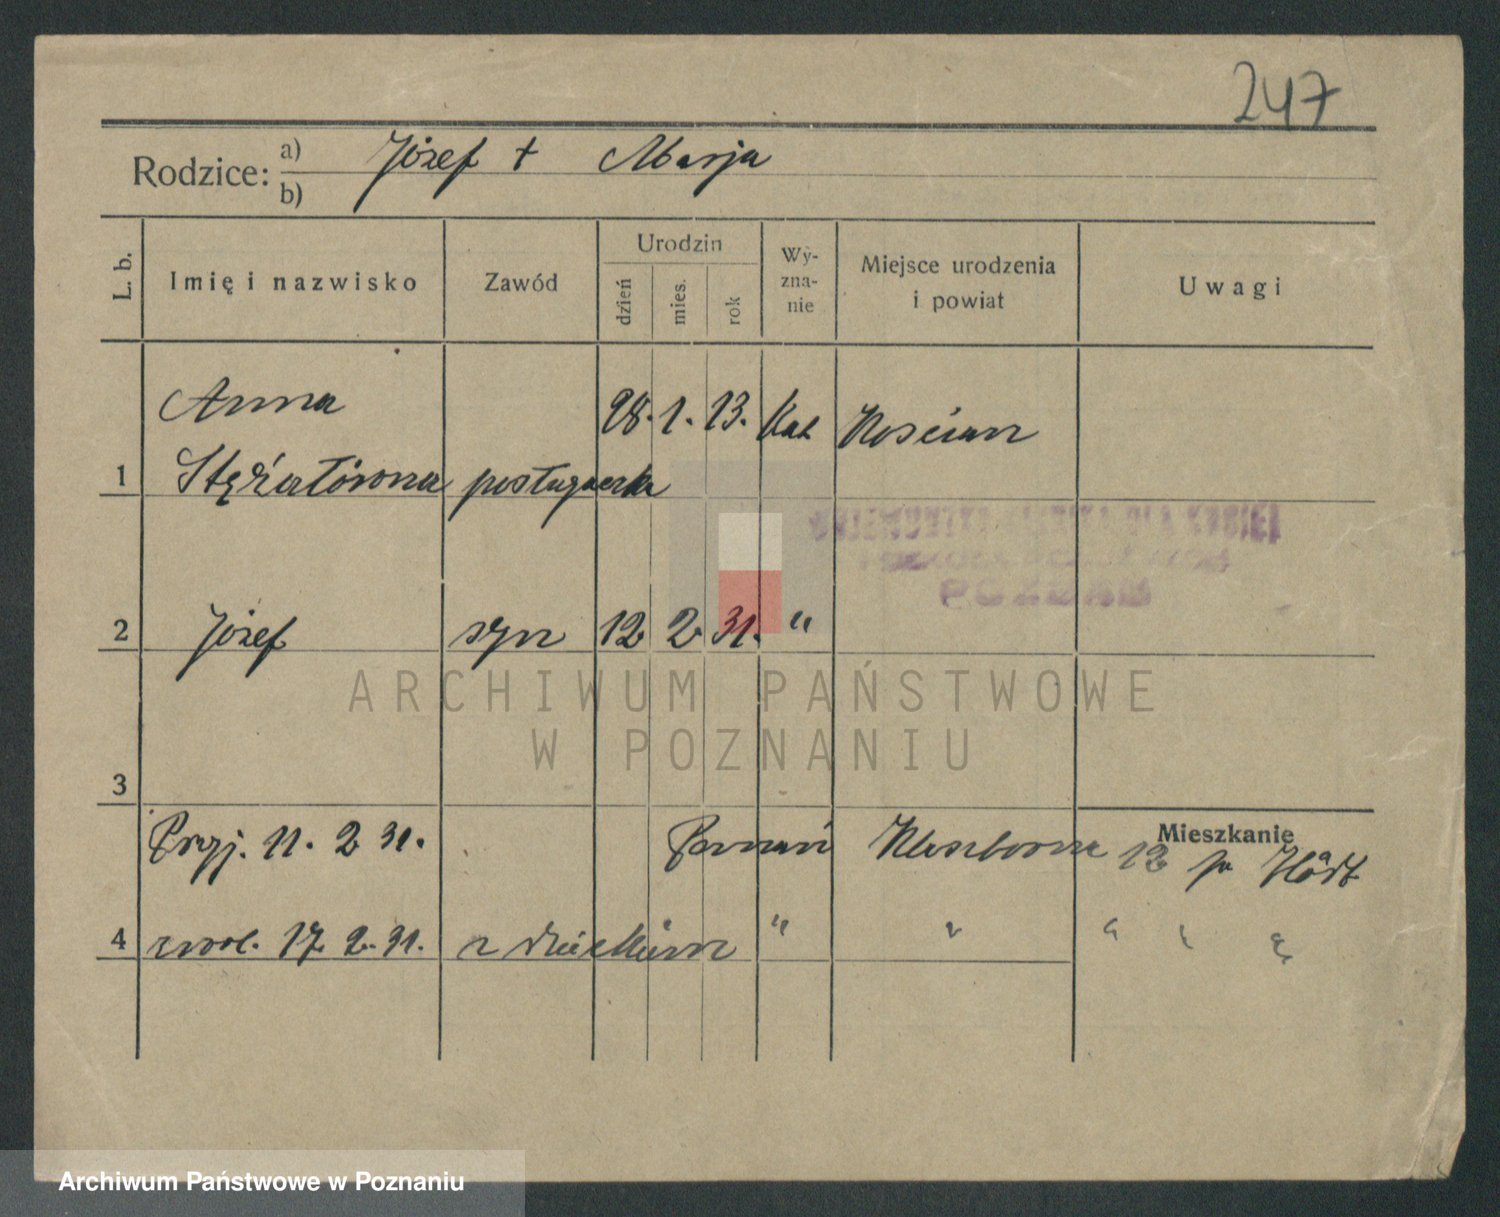 247
Rodzice: a) Józef + Marja
b)
L. b. Imię i nazwisko Zawód Urodzin dzień mies. rok Wy-zna-nie Miejsce urodzenia i powiat Uwagi
Anna 28. 1. 13. Kat Kościan
1 posługaczka
2 Józef syn 12 2 31. "
ARCHIWUM PAŃSTWOWE
W POZNANIU
3
Mieszkanie
Przyj. 11. 2 31. Poznań Klasztorna 12 pr
4 zwol. 17 2. 31. z dzieckiem " " " " "
Archiwum Państwowe w Poznaniu